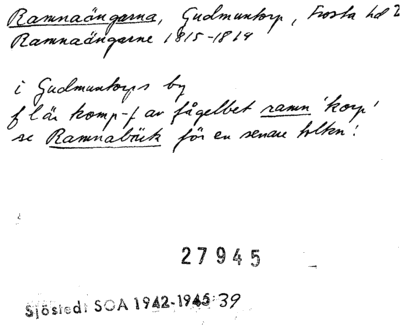 Ramnaängarna, Gudmuntorp, Frosta hd 2
Ramnaängarne 1815-1814
i Gudmuntorps by
f l är komp-f av fågelbet ramn 'korp'
se Ramnabäck för en senare tolkn!
27945
Sjöstedt SOA 1942-1945:39